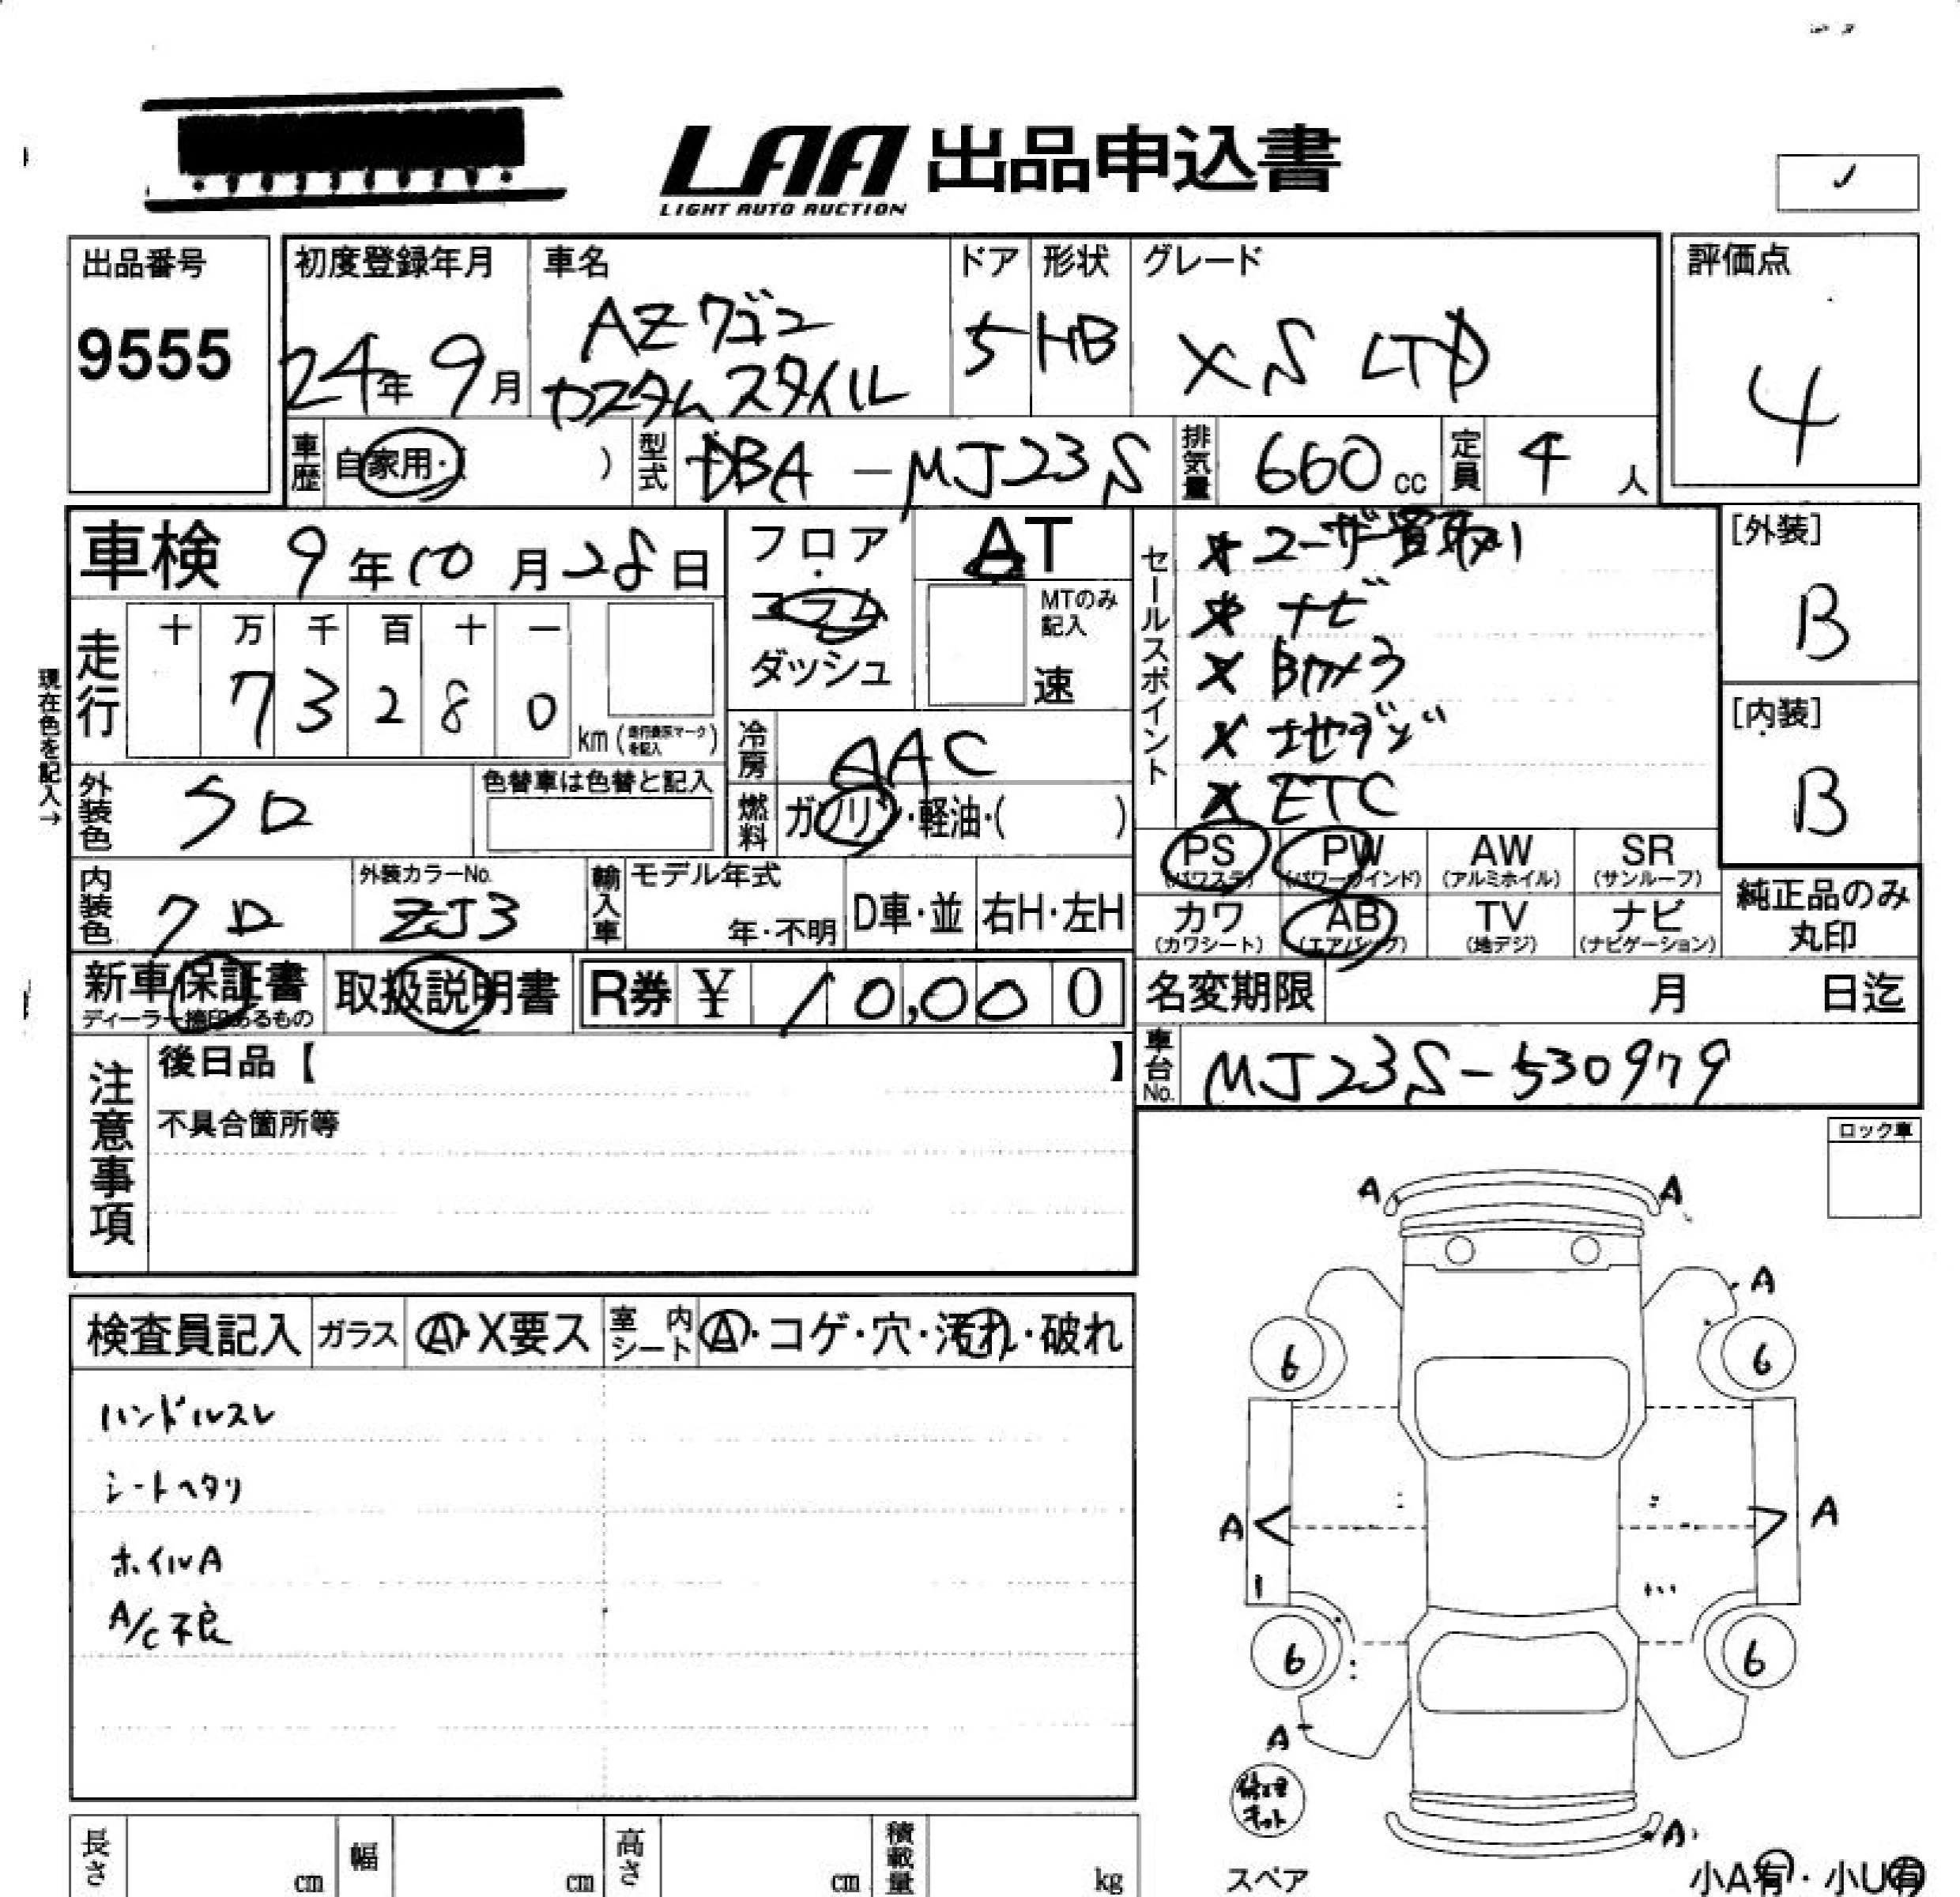 LAA 出品申込書
LIGHT AUTO AUCTION
出品番号
9555
初度登録年月
24年 9月
車名
AZワゴン
カスタムスタイル
ドア
5
形状
HB
グレード
XS LTD
評価点
4
車歴
自家用・( )
型式
DBA-MJ23S
排気量
660cc
定員
4人
車検 9年10月28日
フロア
・
コラム
ダッシュ
AT
MTのみ
記入
速
セールスポイント
×ユーザー買取り
×ナビ
×Bカメラ
×地デジ
×ETC
[外装]
B
[内装]
B
現在色を記入→
走行
十 万 千 百 十 一
7 3 2 8 0
km(走行表示マークを記入)
冷房
AAC
外装色
SD
色替車は色替と記入
燃料
ガソリン・軽油・( )
PS
(パワステ)
PW
(パワーウインド)
AW
(アルミホイル)
SR
(サンルーフ)
カワ
(カワシート)
AB
(エアバック)
TV
(地デジ)
ナビ
(ナビゲーション)
純正品のみ
丸印
内装色
クロ
外装カラーNo.
ZJ3
輸入車
モデル年式
年・不明
D車・並
右H・左H
新車保証書
ディーラー捺印あるもの
取扱説明書
R券 ¥ 10,000
名変期限
月 日迄
車台No.
MJ23S-530979
注意事項
後日品【 】
不具合箇所等
ロック車
検査員記入
ガラス
A・X要ス
室内シート
A・コゲ・穴・汚れ・破れ
ハンドルスレ
シートヘタリ
ホイルA
A/C不良
A A
A
6 6
A A
6 6
A
修理キット
A
スペア
小A有・小U有
長さ
cm
幅
cm
高さ
cm
積載量
kg